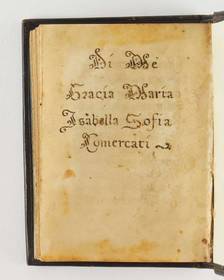 Di Me
Gracia Maria
Isabella Sofia
Comercati